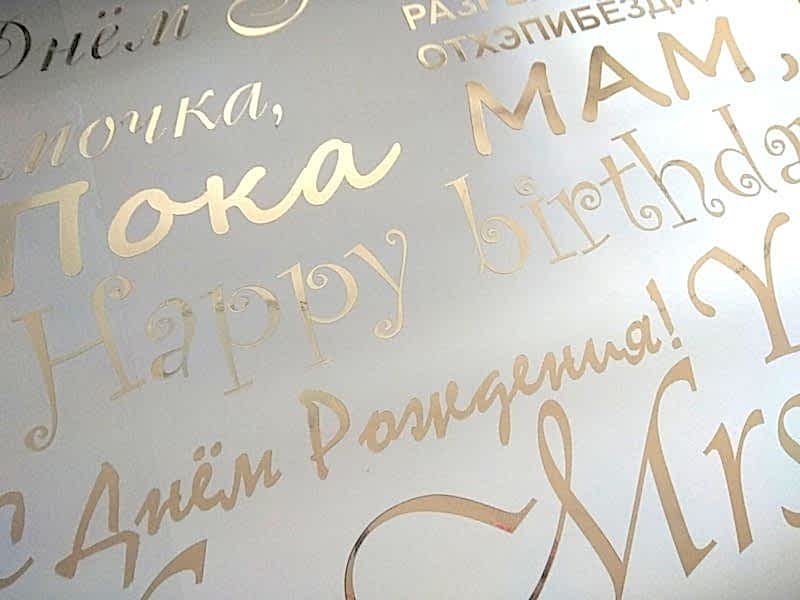 Днём
РАЗРЕ
ОТХЭПИБЕЗДИ
мочка,
МАМ,
Пока
Happy birthda
С Днём Рождения!
Mrs